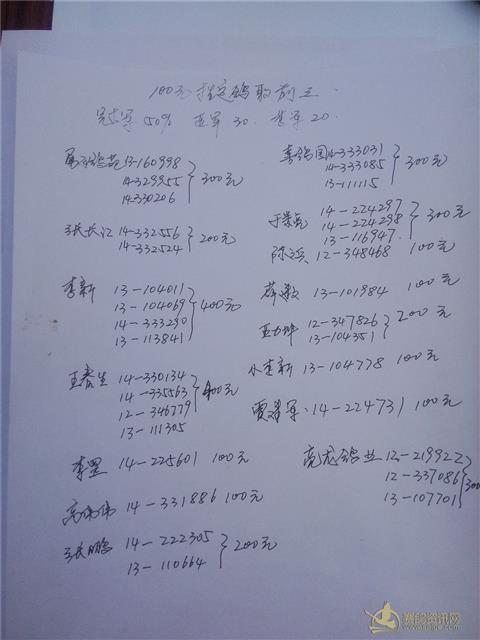 100元指定鸽取前三
冠军50% 亚军30. 季军20.
13-160998
14-329955 300元
14-330206
张长江 14-332556
14-332524 200元
李新 13-104011
13-104069 400元
14-333290
13-113841
王春生 14-330134
14-335563 400元
12-346779
13-111305
李罡 14-225601 100元
高伟伟 14-331886 100元
张鹏 14-222305
13-110664 200元
喜鸽园 14-333031
14-333085 300元
13-111115
14-224297
14-224298 300元
13-116947
陈滨 12-348468 100元
13-101984 100元
12-347826 200元
13-104351
小李新 13-104778 100元
14-224731 100元
亮龙鸽业 12-219922
12-337086 300
13-107701
赛鸽资讯网